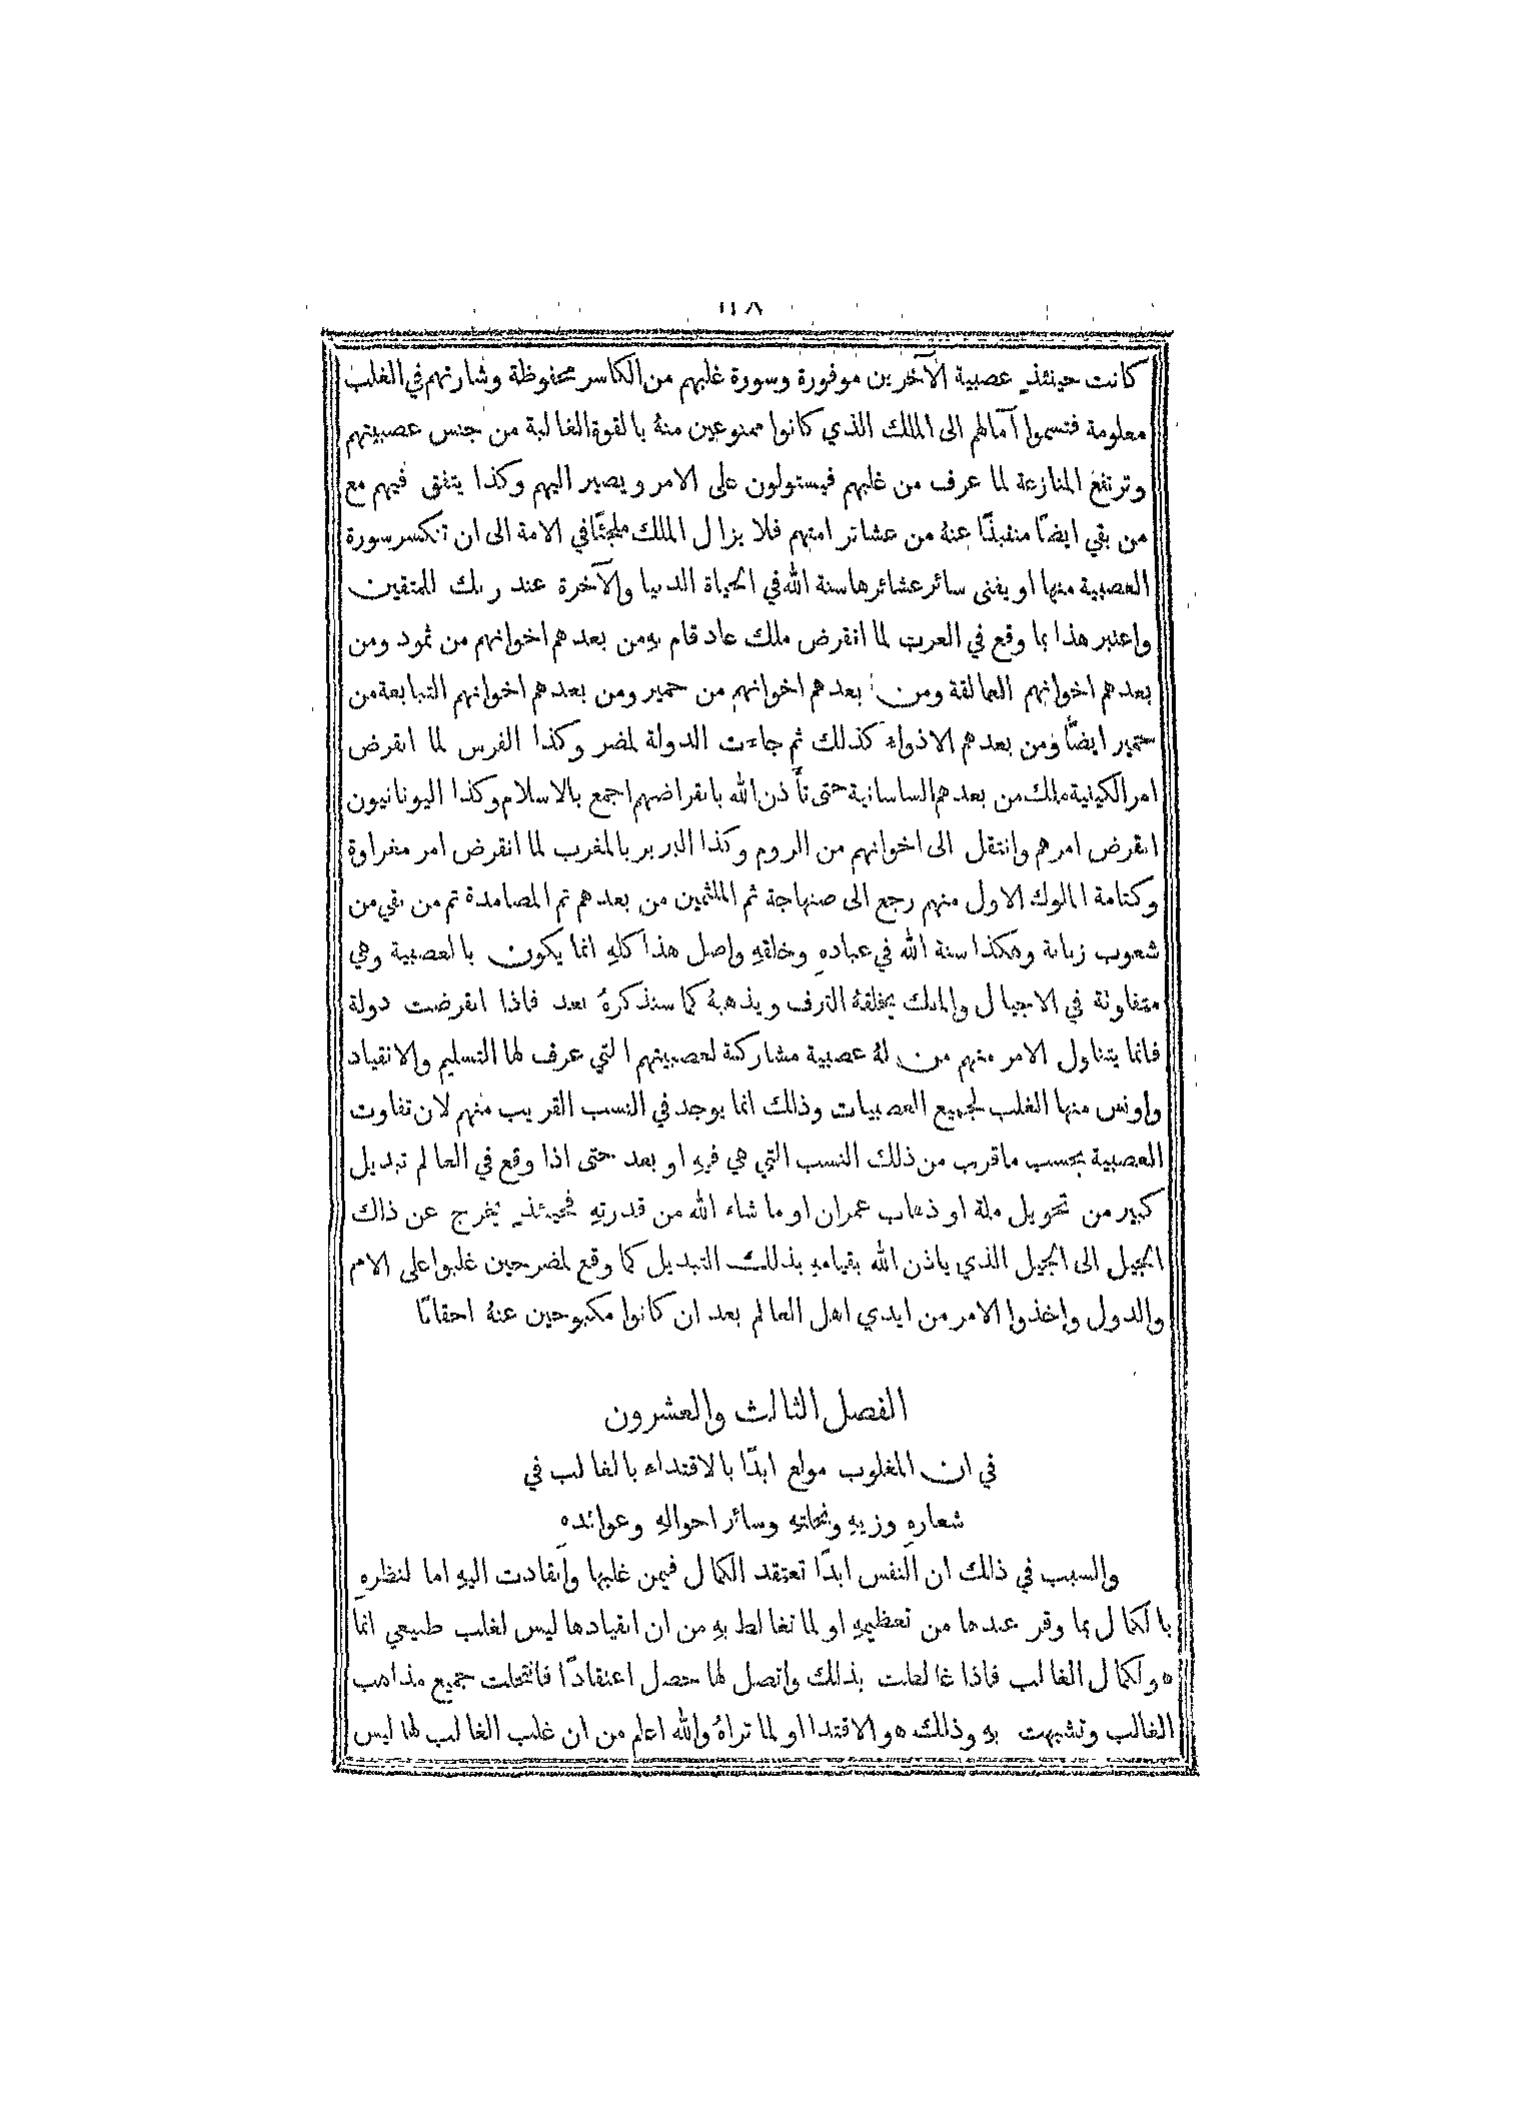 كانت حينئذٍ عصبية الآخرين موفورة وسورة غلبهم من الكاسر محفوظة وشارتهم في الغلب
معلومة فتسموا آمالهم الى الملك الذي كانوا ممنوعين منهُ بالقوة الغالبة من جنس عصبيتهم
وترتفع المنازعة لما عرف من غلبهم فيستولون على الامر ويصير اليهم وكذا يتفق فيهم مع
من بقي ايضًا منتبذًا عنهُ من عشائر امتهم فلا يزال الملك ملجئًا في الامة الى ان تنكسر سورة
العصبية منها او يفنى سائر عشائرها سنة الله في الحياة الدنيا والآخرة عند ربك للمتقين
واعتبر هذا بما وقع في العرب لما انقرض ملك عاد قام بهِ من بعدهم اخوانهم من ثمود ومن
بعدهم اخوانهم العمالقة ومن بعدهم اخوانهم من حمير ومن بعدهم اخوانهم التبابعة من
حمير ايضًا ومن بعدهم الاذواء كذلك ثم جاءت الدولة لمضر وكذا الفرس لما انقرض
امر الكينية ملك من بعدهم الساسانية حتى تأذن الله بانقراضهم اجمع بالاسلام وكذا اليونانيون
انقرض امرهم وانتقل الى اخوانهم من الروم وكذا البربر بالمغرب لما انقرض امر مغراوة
وكتامة الملوك الاول منهم رجع الى صنهاجة ثم الملثمين من بعدهم ثم المصامدة ثم من بقي من
شعوب زناتة وهكذا سنة الله في عبادهِ وخلقهِ واصل هذا كلهِ انما يكون بالعصبية وهي
متفاوتة في الاجيال والملك يخلقهُ الترف ويذهبهُ كما سنذكرهُ بعد فاذا انقرضت دولة
فانما يتناول الامر منهم من لهُ عصبية مشاركة لعصبيتهم التي عرف لها التسليم والانقياد
واونس منها الغلب لجميع العصبيات وذلك انما يوجد في النسب القريب منهم لان تفاوت
العصبية بحسب ما قرب من ذلك النسب التي هي فيهِ او بعد حتى اذا وقع في العالم تبديل
كبير من تحويل ملة او ذهاب عمران او ما شاء الله من قدرتهِ فحينئذٍ يخرج عن ذلك
الجيل الى الجيل الذي ياذن الله بقيامهِ بذلك التبديل كما وقع لمضر حين غلبوا على الامم
والدول واخذوا الامر من ايدي اهل العالم بعد ان كانوا مكبوحين عنهُ احقابًا
الفصل الثالث والعشرون
في ان المغلوب مولع ابدًا بالاقتداء بالغالب في
شعارهِ وزيهِ ونحلتهِ وسائر احوالهِ وعوائدهِ
والسبب في ذلك ان النفس ابدًا تعتقد الكمال فيمن غلبها وانقادت اليهِ اما لنظرهِ
بالكمال بما وقر عندها من تعظيمهِ او لما تغالط بهِ من ان انقيادها ليس لغلب طبيعي انما
هو لكمال الغالب فاذا غالطت بذلك واتصل لها حصل اعتقادًا فانتحلت جميع مذاهب
الغالب وتشبهت بهِ وذلك هو الاقتدا او لما تراهُ والله اعلم من ان غلب الغالب لها ليس